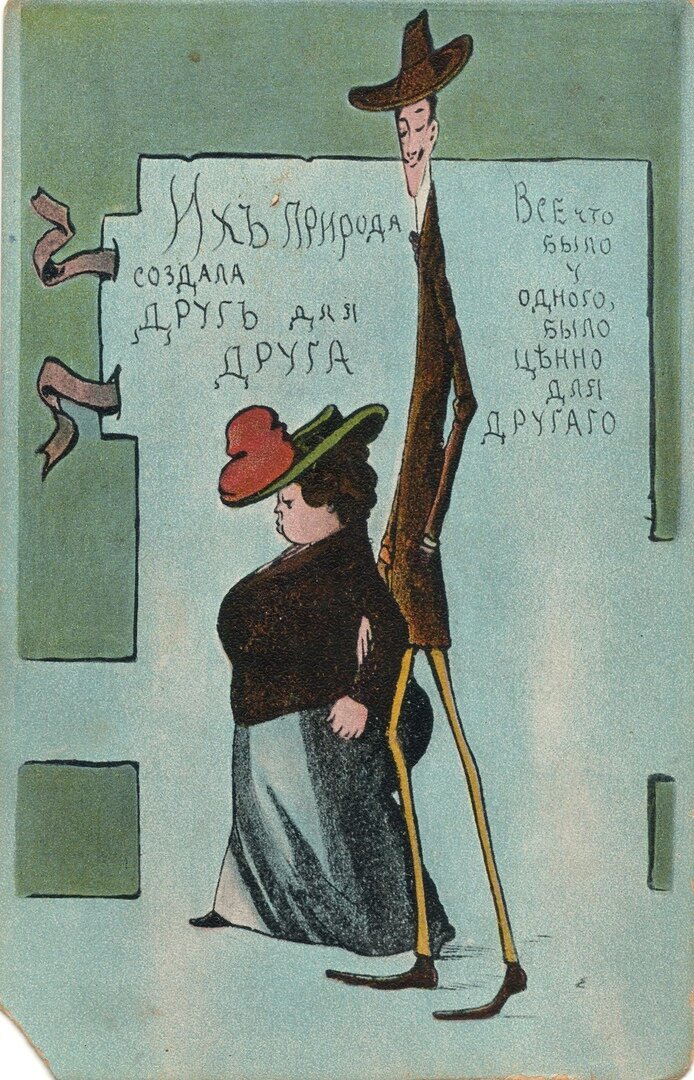 Ихъ природа
создала
другъ для
друга
Все что
было
у
одного,
было
цѣнно
для
другаго